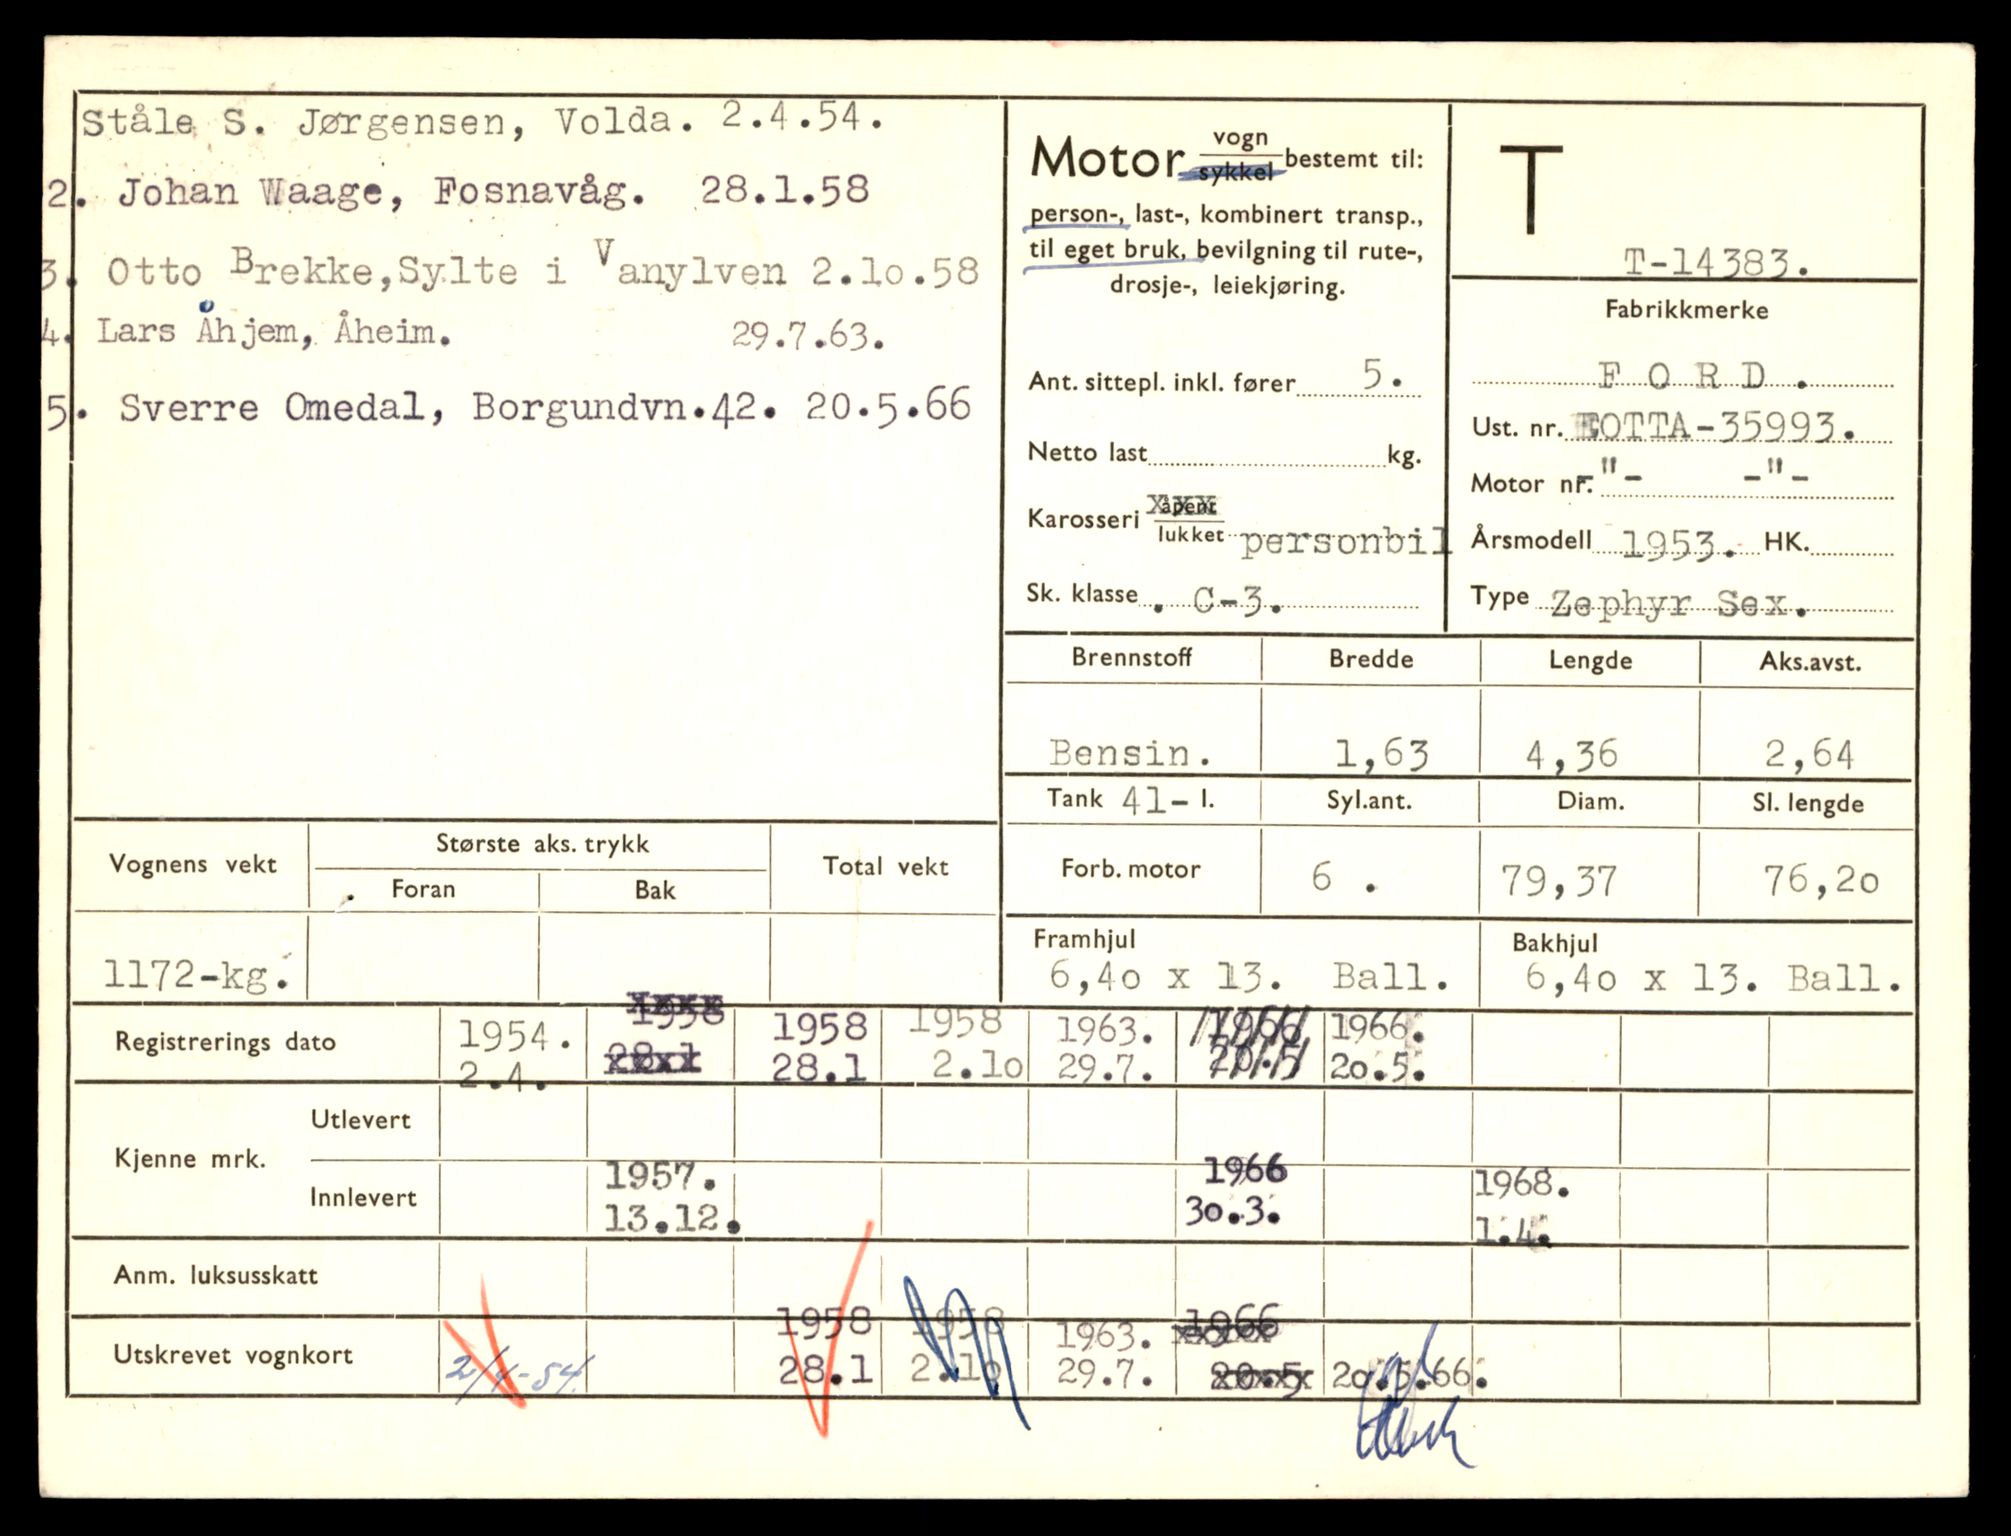 Ståle S. Jørgensen, Volda. 2.4.54.
2. Johan Waage, Fosnavåg. 28.1.58
3. Otto Brekke, Sylte i Vanylven 2.10.58
4. Lars Åhjem, Åheim. 29.7.63.
5. Sverre Omedal, Borgundvn.42. 20.5.66
Motor vogn/sykkel bestemt til:
person-, last-, kombinert transp.,
til eget bruk, bevilgning til rute-,
drosje-, leiekjøring.
Ant. sittepl. inkl. fører 5.
Netto last kg.
Karosseri åpent/lukket personbil
Sk. klasse . C-3.
T
T-14383.
Fabrikkmerke
F O R D .
Ust. nr. EOTTA-35993.
Motor nr. -"- -"-
Årsmodell 1953. HK.
Type Zephyr Sex.
Brennstoff Bredde Lengde Aks.avst.
Bensin. 1,63 4,36 2,64
Tank 41- l. Syl.ant. Diam. Sl. lengde
Forb. motor 6 . 79,37 76,20
Framhjul Bakhjul
6,40 x 13. Ball. 6,40 x 13. Ball.
Vognens vekt Største aks. trykk Total vekt
Foran Bak
1172-kg.
Registrerings dato 1954. 1958 1958 1958 1963. 1966 1966.
2.4. 28.1 28.1 2.10 29.7. 20.5 20.5.
Kjenne mrk. Utlevert
Innlevert 1957. 1966 1968.
13.12. 30.3. 1.4.
Anm. luksusskatt
Utskrevet vognkort 1958 1958 1963. 1966
2/4-54. 28.1 2.10 29.7. 20.5 20.5.66.